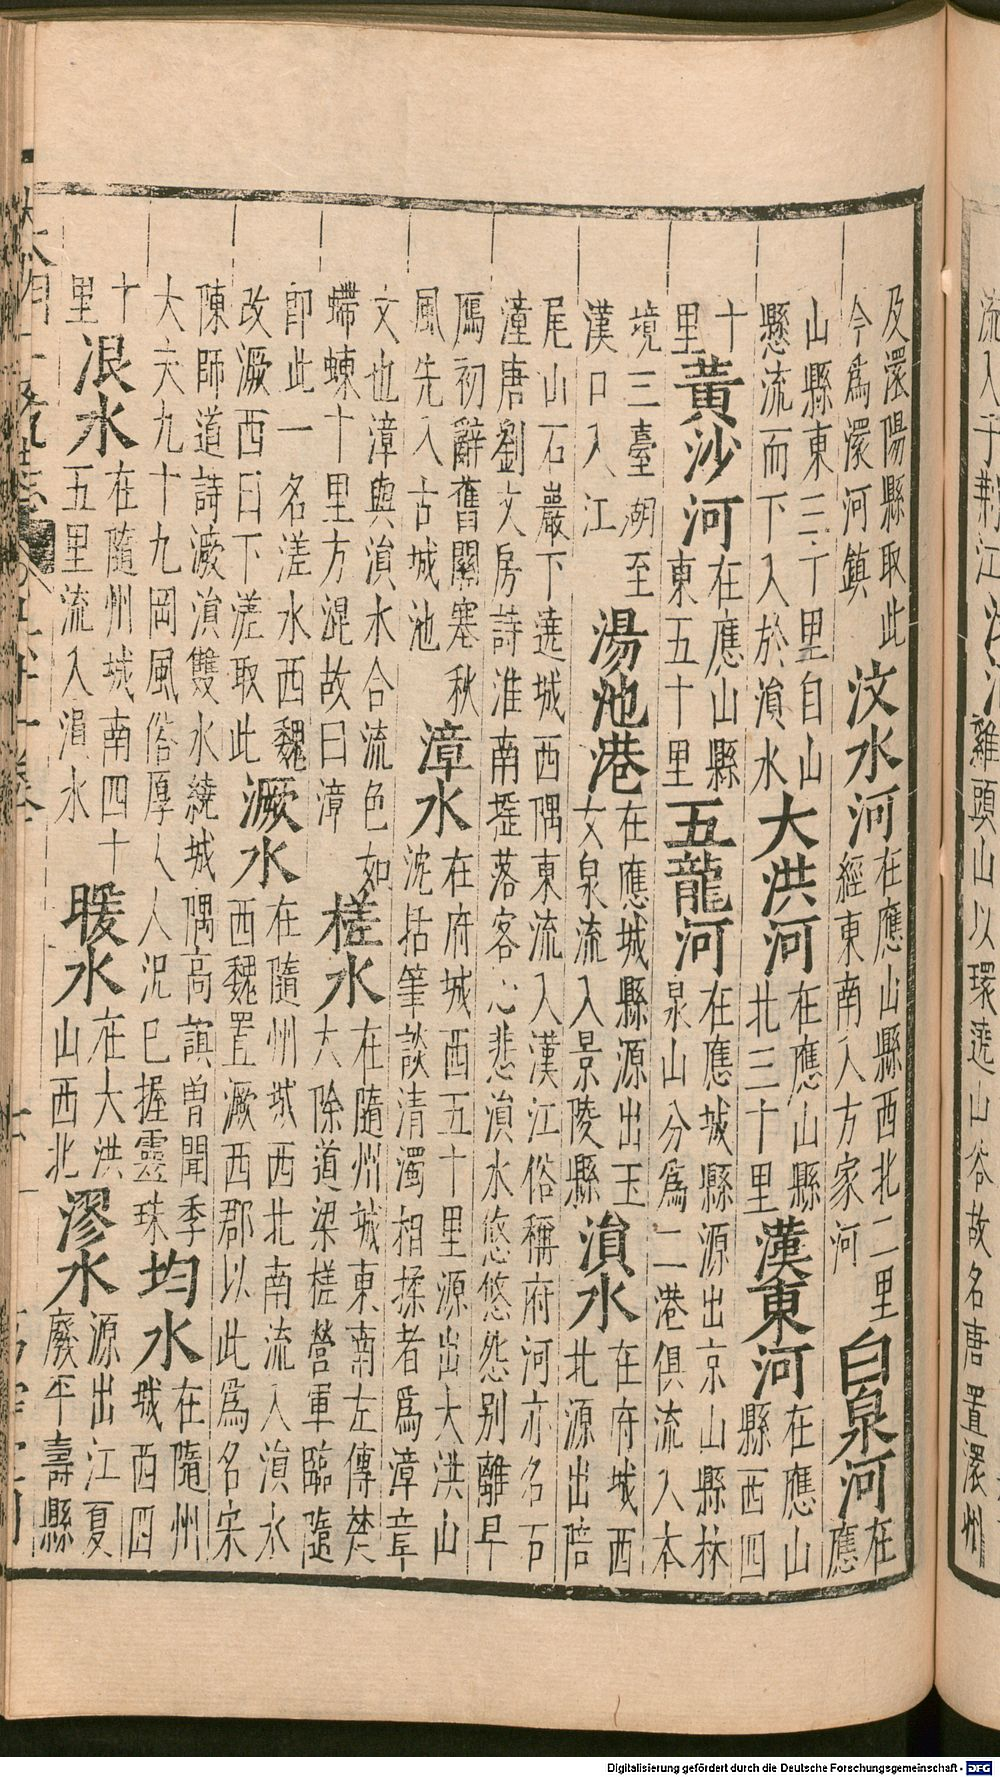 及澴陽縣取此今為澴河鎮汶水河在應山縣西北二里經東南入方家河白泉河在應
山縣東三十里自山懸流而下入於溳水大洪河在應山縣北三十里漢東河在應山縣西四
十里黃沙河在應山縣東五十里五龍河在應城縣源出京山縣林泉山分為二港俱流入本
境三臺湖至漢口入江湯池港在應城縣源出玉女泉流入景陵縣溳水在府城西北源出陪
尾山石巖下遶城西隅東流入漢江俗稱府河亦名石潼唐劉文房詩淮南搖落客心悲溳水悠悠怨別離早
鴈初辭舊關塞秋風先入古城池漳水在府城西五十里源出大洪山沈括筆談清濁相揉者為漳章
文也漳與溳水合流色如螮蝀十里方混故曰漳槎水在隨州城東南左傳楚大除道梁槎營軍臨隨
即此一名溠水西魏改㵐西曰下溠取此㵐水在隨州城西北南流入溳水西魏置㵐西郡以此為名宋
陳師道詩㵐溳雙水繞城隅高誼曾聞季大夫九十九岡風俗厚人人況已握靈珠均水在隨州城西四
十里泿水在隨州城南四十五里流入溳水暖水在大洪山西北漻水源出江夏廢平壽縣
Digitalisierung gefördert durch die Deutsche Forschungsgemeinschaft - DFG